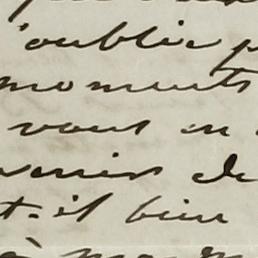 'oublie p
moments
vous en
venir de
t-il bien
à